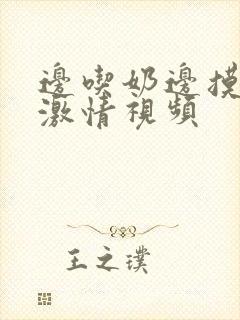 邊喫奶邊摸
激情視頻
王之璞